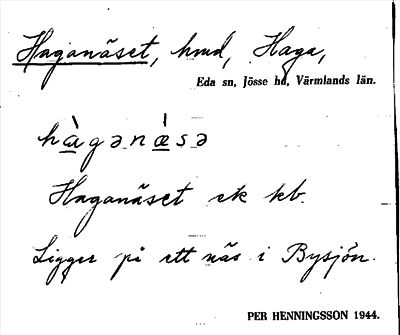 Haganäset, hmd, Haga,
Eda sn, Jösse hd, Värmlands län.
hàgənæ̀sə
Haganäset ek kb.
Ligger på ett näs i Bysjön.
PER HENNINGSSON 1944.